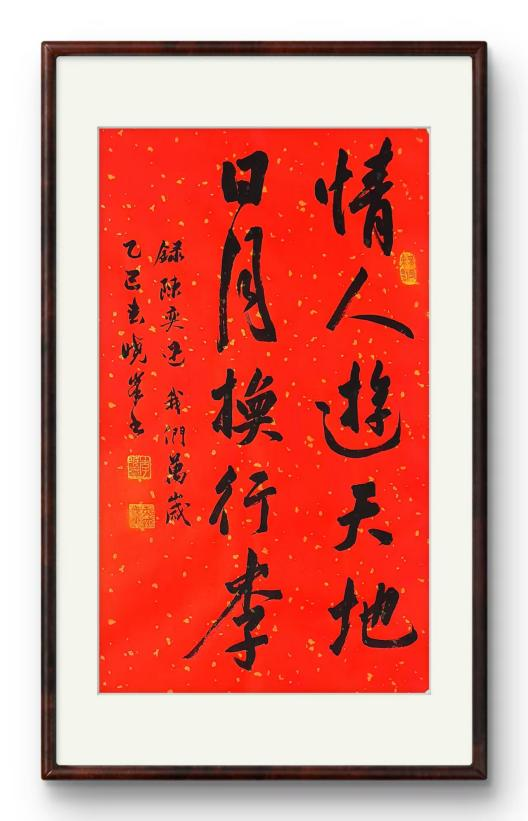 情人遊天地
日月換行李
録陳奕迅我們萬歲
乙巳春曉峯書